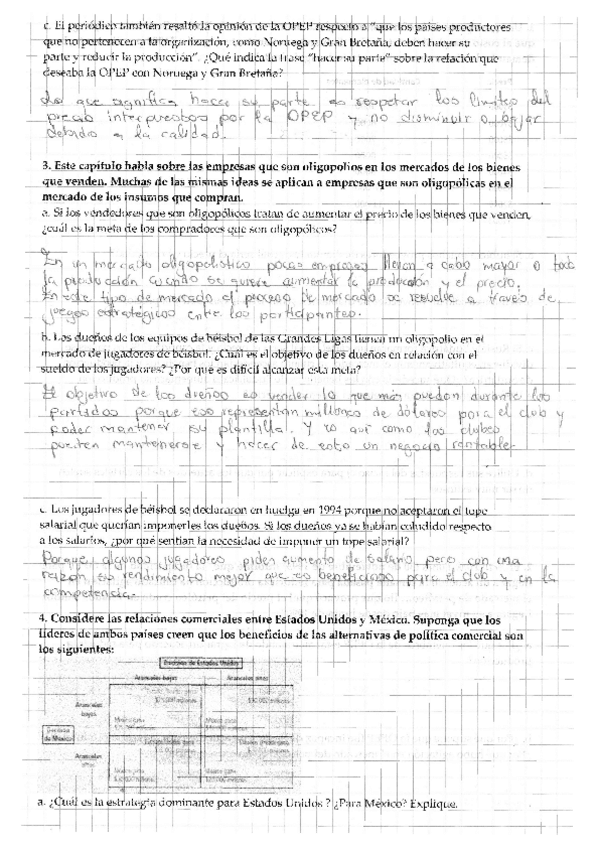 c. El periódico también resaltó la opinión de la OPEP respecto a "que los países productores
que no pertenecen a la organización, como Noruega y Gran Bretaña, deben hacer su
parte y reducir la producción". ¿Qué indica la frase "hacer su parte" sobre la relación que
deseaba la OPEP con Noruega y Gran Bretaña?
Lo que significa hacer su parte es respetar los limites del
precio interpuestos por la OPEP y no disminuir o bajar
debido a la calidad.
3. Este capítulo habla sobre las empresas que son oligopolios en los mercados de los bienes
que venden. Muchas de las mismas ideas se aplican a empresas que son oligopólicas en el
mercado de los insumos que compran.
a. Si los vendedores que son oligopólicos tratan de aumentar el precio de los bienes que venden,
¿cuál es la meta de los compradores que son oligopólicos?
En un mercado oligopolistico pocas empresas llevan a cabo mayor o toda
la producción cuando se quiere aumentar la producción y el precio.
En este tipo de mercado el proceso de mercado se resuelve a través de
juegos estratégicos entre los participantes.
b. Los dueños de los equipos de béisbol de las Grandes Ligas tienen un oligopolio en el
mercado de jugadores de béisbol. ¿Cuál es el objetivo de los dueños en relación con el
sueldo de los jugadores? ¿Por qué es difícil alcanzar esta meta?
El objetivo de los dueños es vender lo que más puedan durante los
partidos porque eso representan millones de dolares para el club y
poder mantener su plantilla. Y es así como los clubes
pueden mantenerse y hacer de esto un negocio rentable.
c. Los jugadores de béisbol se declararon en huelga en 1994 porque no aceptaron el tope
salarial que querían imponerles los dueños. Si los dueños ya se habían coludido respecto
a los salarios, ¿por qué sentían la necesidad de imponer un tope salarial?
Porque algunos jugadores piden aumento de salario pero con una
razón su rendimiento mejor que es beneficioso para el club y en la
competencia.
4. Considere las relaciones comerciales entre Estados Unidos y México. Suponga que los
líderes de ambos países creen que los beneficios de las alternativas de política comercial son
los siguientes:
Decisión de Estados Unidos
Aranceles bajos Aranceles altos
Aranceles
bajos
Decisión
de México
Aranceles
altos
a. ¿Cuál es la estrategia dominante para Estados Unidos ? ¿Para México? Explique.